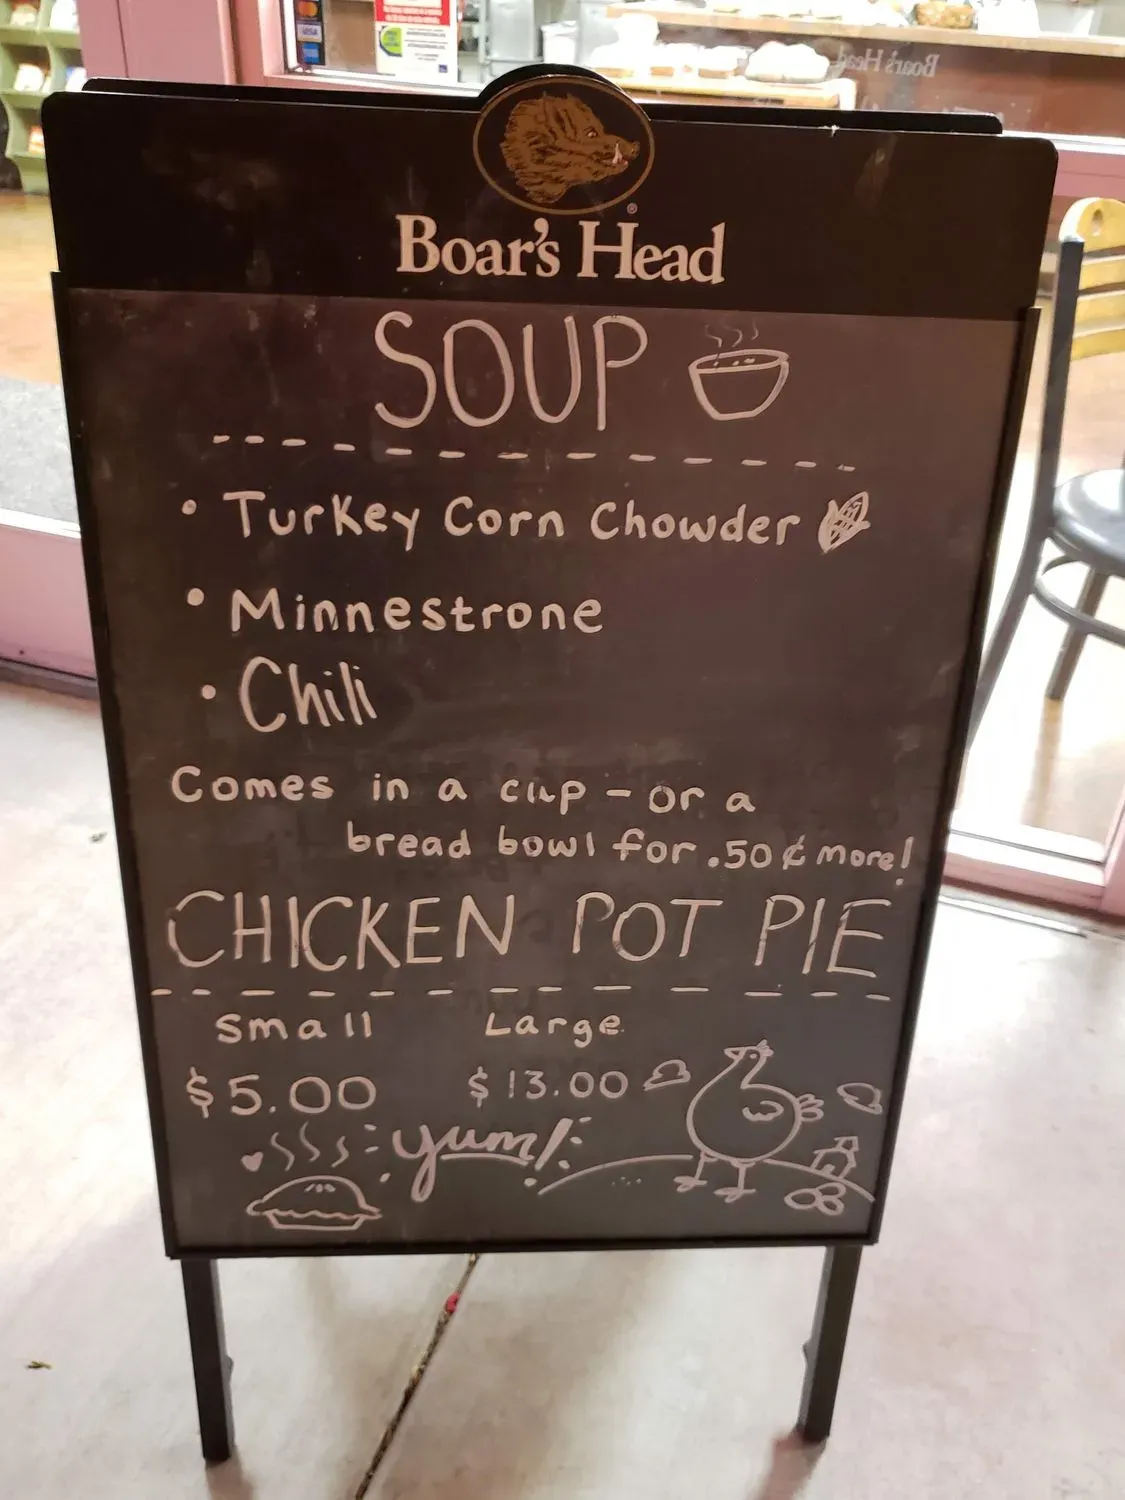 VISA
Boar's Head
Boar's Head
SOUP
• Turkey Corn Chowder
• Minnestrone
• Chili
Comes in a cup - or a
bread bowl for .50¢ more!
CHICKEN POT PIE
Small Large
$5.00 $13.00
yum!